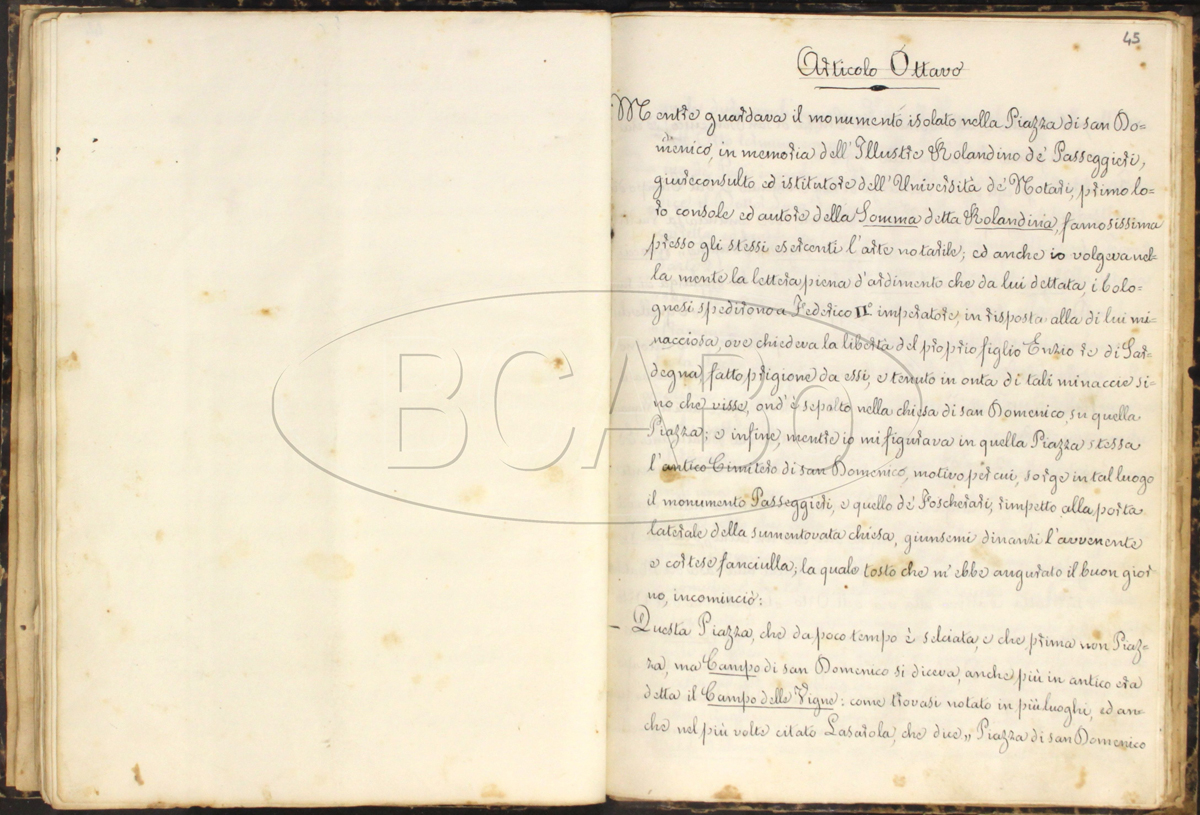 45
Articolo Ottavo
Mentre guardava il monumento isolato nella Piazza di san Do=
menico, in memoria dell'Illustre Rolandino de' Passeggieri,
giureconsulto ed istitutore dell'Università de' Notari, primo lo=
ro console ed autore della Somma detta Rolandina, famosissima
presso gli stessi esercenti l'arte notarile; ed anche io volgeva nel=
la mente la lettera piena d'ardimento che da lui dettata, i bolo=
gnesi spedirono a Federico II° imperatore, in risposta alla di lui mi=
nacciosa, ove chiedeva la libertà del proprio figlio Enzio re di Sar=
degna, fatto prigione da essi, e tenuto in onta di tali minaccie si=
no che visse, ond'è sepolto nella chiesa di san Domenico, su quella
Piazza; e infine, mentre io mi figurava in quella Piazza stessa
l'antico Cimitero di san Domenico, motivo per cui, sorge in tal luogo
il monumento Passeggieri, e quello de' Foscherari, rimpetto alla porta
laterale della sumentovata chiesa, giunsemi dinanzi l'avvenente
e cortese fanciulla; la quale tosto che m'ebbe augurato il buon gior
no, incominciò:
– Questa Piazza, che da poco tempo è selciata, e che prima non Piaz=
za, ma Campo di san Domenico si diceva, anche più in antico era
detta il Campo delle Vigne: come trovasi notato in più luoghi, ed an=
che nel più volte citato Lasarola, che dice „ Piazza di san Domenico
BCABo